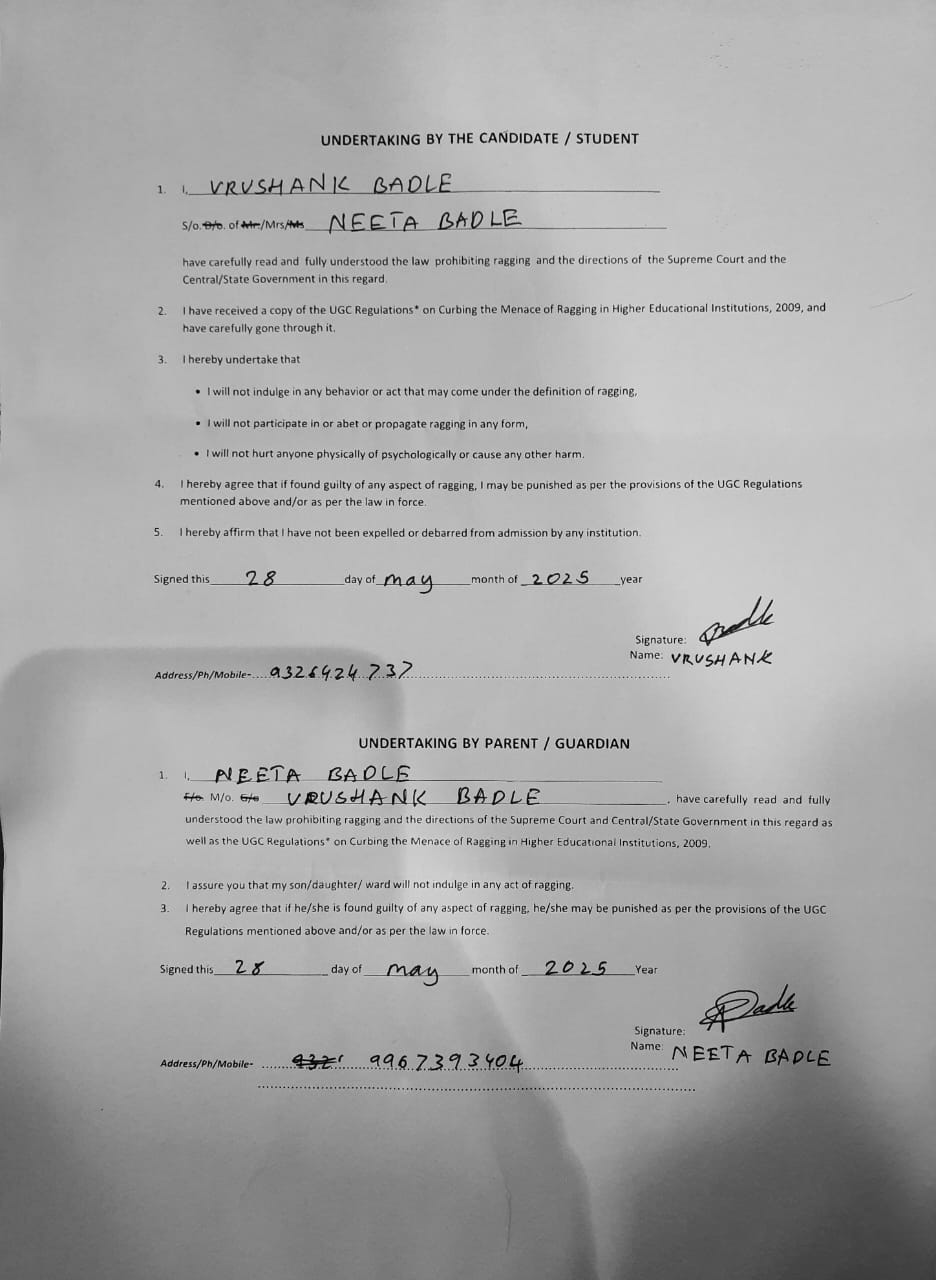 UNDERTAKING BY THE CANDIDATE / STUDENT
1. I, VRUSHANK BADLE
S/o. D/o. of Mr/Mrs/Ms NEETA BADLE
have carefully read and fully understood the law prohibiting ragging and the directions of the Supreme Court and the
Central/State Government in this regard.
2. I have received a copy of the UGC Regulations* on Curbing the Menace of Ragging in Higher Educational Institutions, 2009, and
have carefully gone through it.
3. I hereby undertake that
• I will not indulge in any behavior or act that may come under the definition of ragging,
• I will not participate in or abet or propagate ragging in any form,
• I will not hurt anyone physically of psychologically or cause any other harm.
4. I hereby agree that if found guilty of any aspect of ragging, I may be punished as per the provisions of the UGC Regulations
mentioned above and/or as per the law in force.
5. I hereby affirm that I have not been expelled or debarred from admission by any institution.
Signed this 28 day of may month of 2025 year
Signature:
Name: VRUSHANK
Address/Ph/Mobile- 9326424737
UNDERTAKING BY PARENT / GUARDIAN
1. I, NEETA BADLE
F/o. M/o. G/o VRUSHANK BADLE, have carefully read and fully
understood the law prohibiting ragging and the directions of the Supreme Court and Central/State Government in this regard as
well as the UGC Regulations* on Curbing the Menace of Ragging in Higher Educational Institutions, 2009.
2. I assure you that my son/daughter/ ward will not indulge in any act of ragging.
3. I hereby agree that if he/she is found guilty of any aspect of ragging, he/she may be punished as per the provisions of the UGC
Regulations mentioned above and/or as per the law in force.
Signed this 28 day of may month of 2025 Year
Signature:
Name: NEETA BADLE
Address/Ph/Mobile- 9967393404